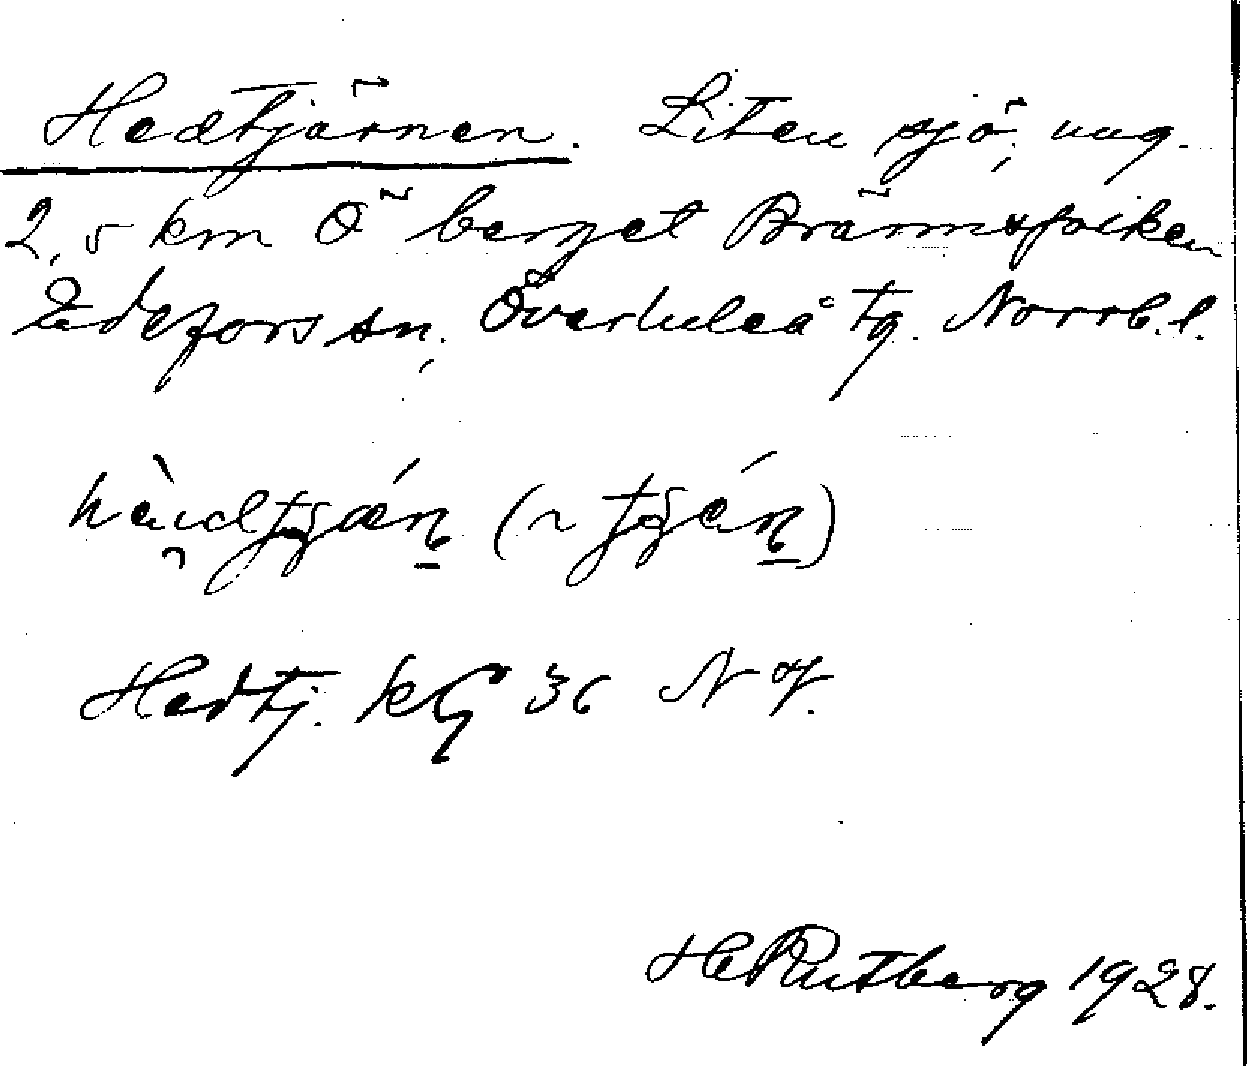 Hedtjärnen. Liten sjö, ung.
2,5 km Ö berget Brännsfoiken
Edefors sn, Överluleå tg. Norrb. l.
Hedtj. kG 36 NV.
H Rutberg 1928.